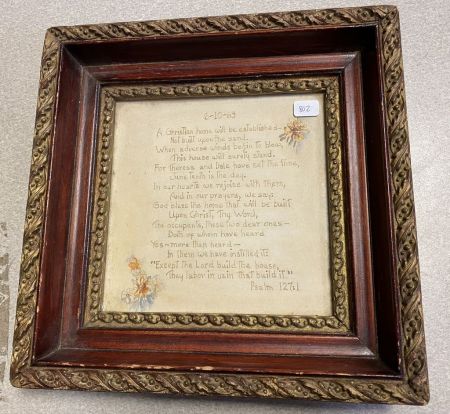 6-10-89
802
A Christian home will be established—
Not built upon the sand.
When adverse winds begin to blow,
This house will surely stand.
For Theresa and Dale have set the time,
June tenth is the day.
In our hearts we rejoice with them,
And in our prayers, we say:
God bless the home that will be built
Upon Christ, Thy Word,
The occupants, these two dear ones—
Both of whom have heard
Yes—more than heard—
In them we have instilled it:
"Except the Lord build the house,
They labor in vain that build it"
Psalm 127:1